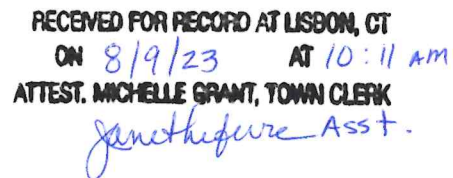 RECEIVED FOR RECORD AT LISBON, CT
ON 8/9/23 AT 10:11 AM
ATTEST. MICHELLE GRANT, TOWN CLERK
Asst.